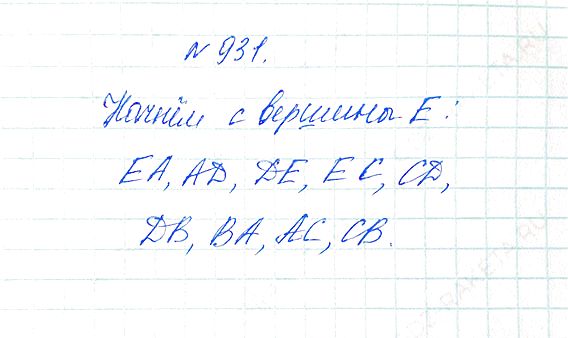 № 931.
Начнём с вершины E:
EA, AD, DE, EC, CD,
DB, BA, AC, CB.